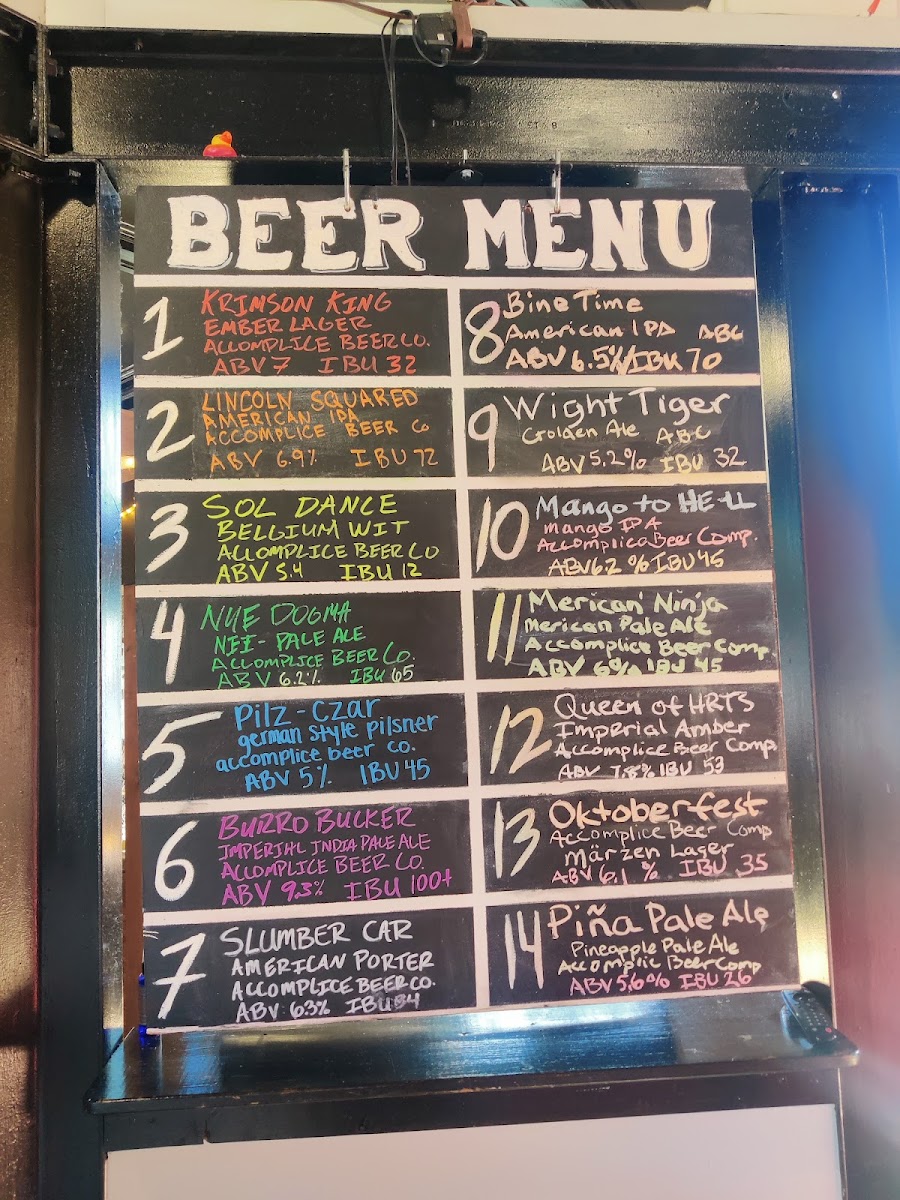 BEER MENU
1
KRIMSON KING
EMBER LAGER
ACCOMPLICE BEER CO.
ABV 7 IBU 32
2
LINCOLN SQUARED
AMERICAN IPA
ACCOMPLICE BEER CO
ABV 6.9% IBU 72
3
SOL DANCE
BELGIUM WIT
ACCOMPLICE BEER CO
ABV 5.4 IBU 12
4
NYE DOGMA
NEI- PALE ALE
ACCOMPLICE BEER CO.
ABV 6.2% IBU 65
5
Pilz-Czar
german style pilsner
accomplice beer co.
ABV 5% IBU 45
6
BURRO BUCKER
IMPERIAL INDIA PALE ALE
ACCOMPLICE BEER CO.
ABV 9.3% IBU 100+
7
SLUMBER CAR
AMERICAN PORTER
ACCOMPLICE BEER CO.
ABV 6.3% IBU 34
8
Bine Time
American IPA ABC
ABV 6.5% IBU 70
9
Wight Tiger
Golden Ale ABC
ABV 5.2% IBU 32
10
Mango to HE-LL
Mango IPA
Accomplice Beer Comp.
ABV 6.2 % IBU 45
11
Merican' Ninja
Merican Pale Ale
Accomplice Beer Comp.
ABV 6% IBU 45
12
Queen of HRTS
Imperial Amber
Accomplice Beer Comp.
ABV 7.8% IBU 53
13
Oktoberfest
Accomplice Beer Comp
Märzen Lager
ABV 6.1 % IBU 35
14
Piña Pale Ale
Pineapple Pale Ale
Accomplic Beer Comp
ABV 5.6% IBU 26